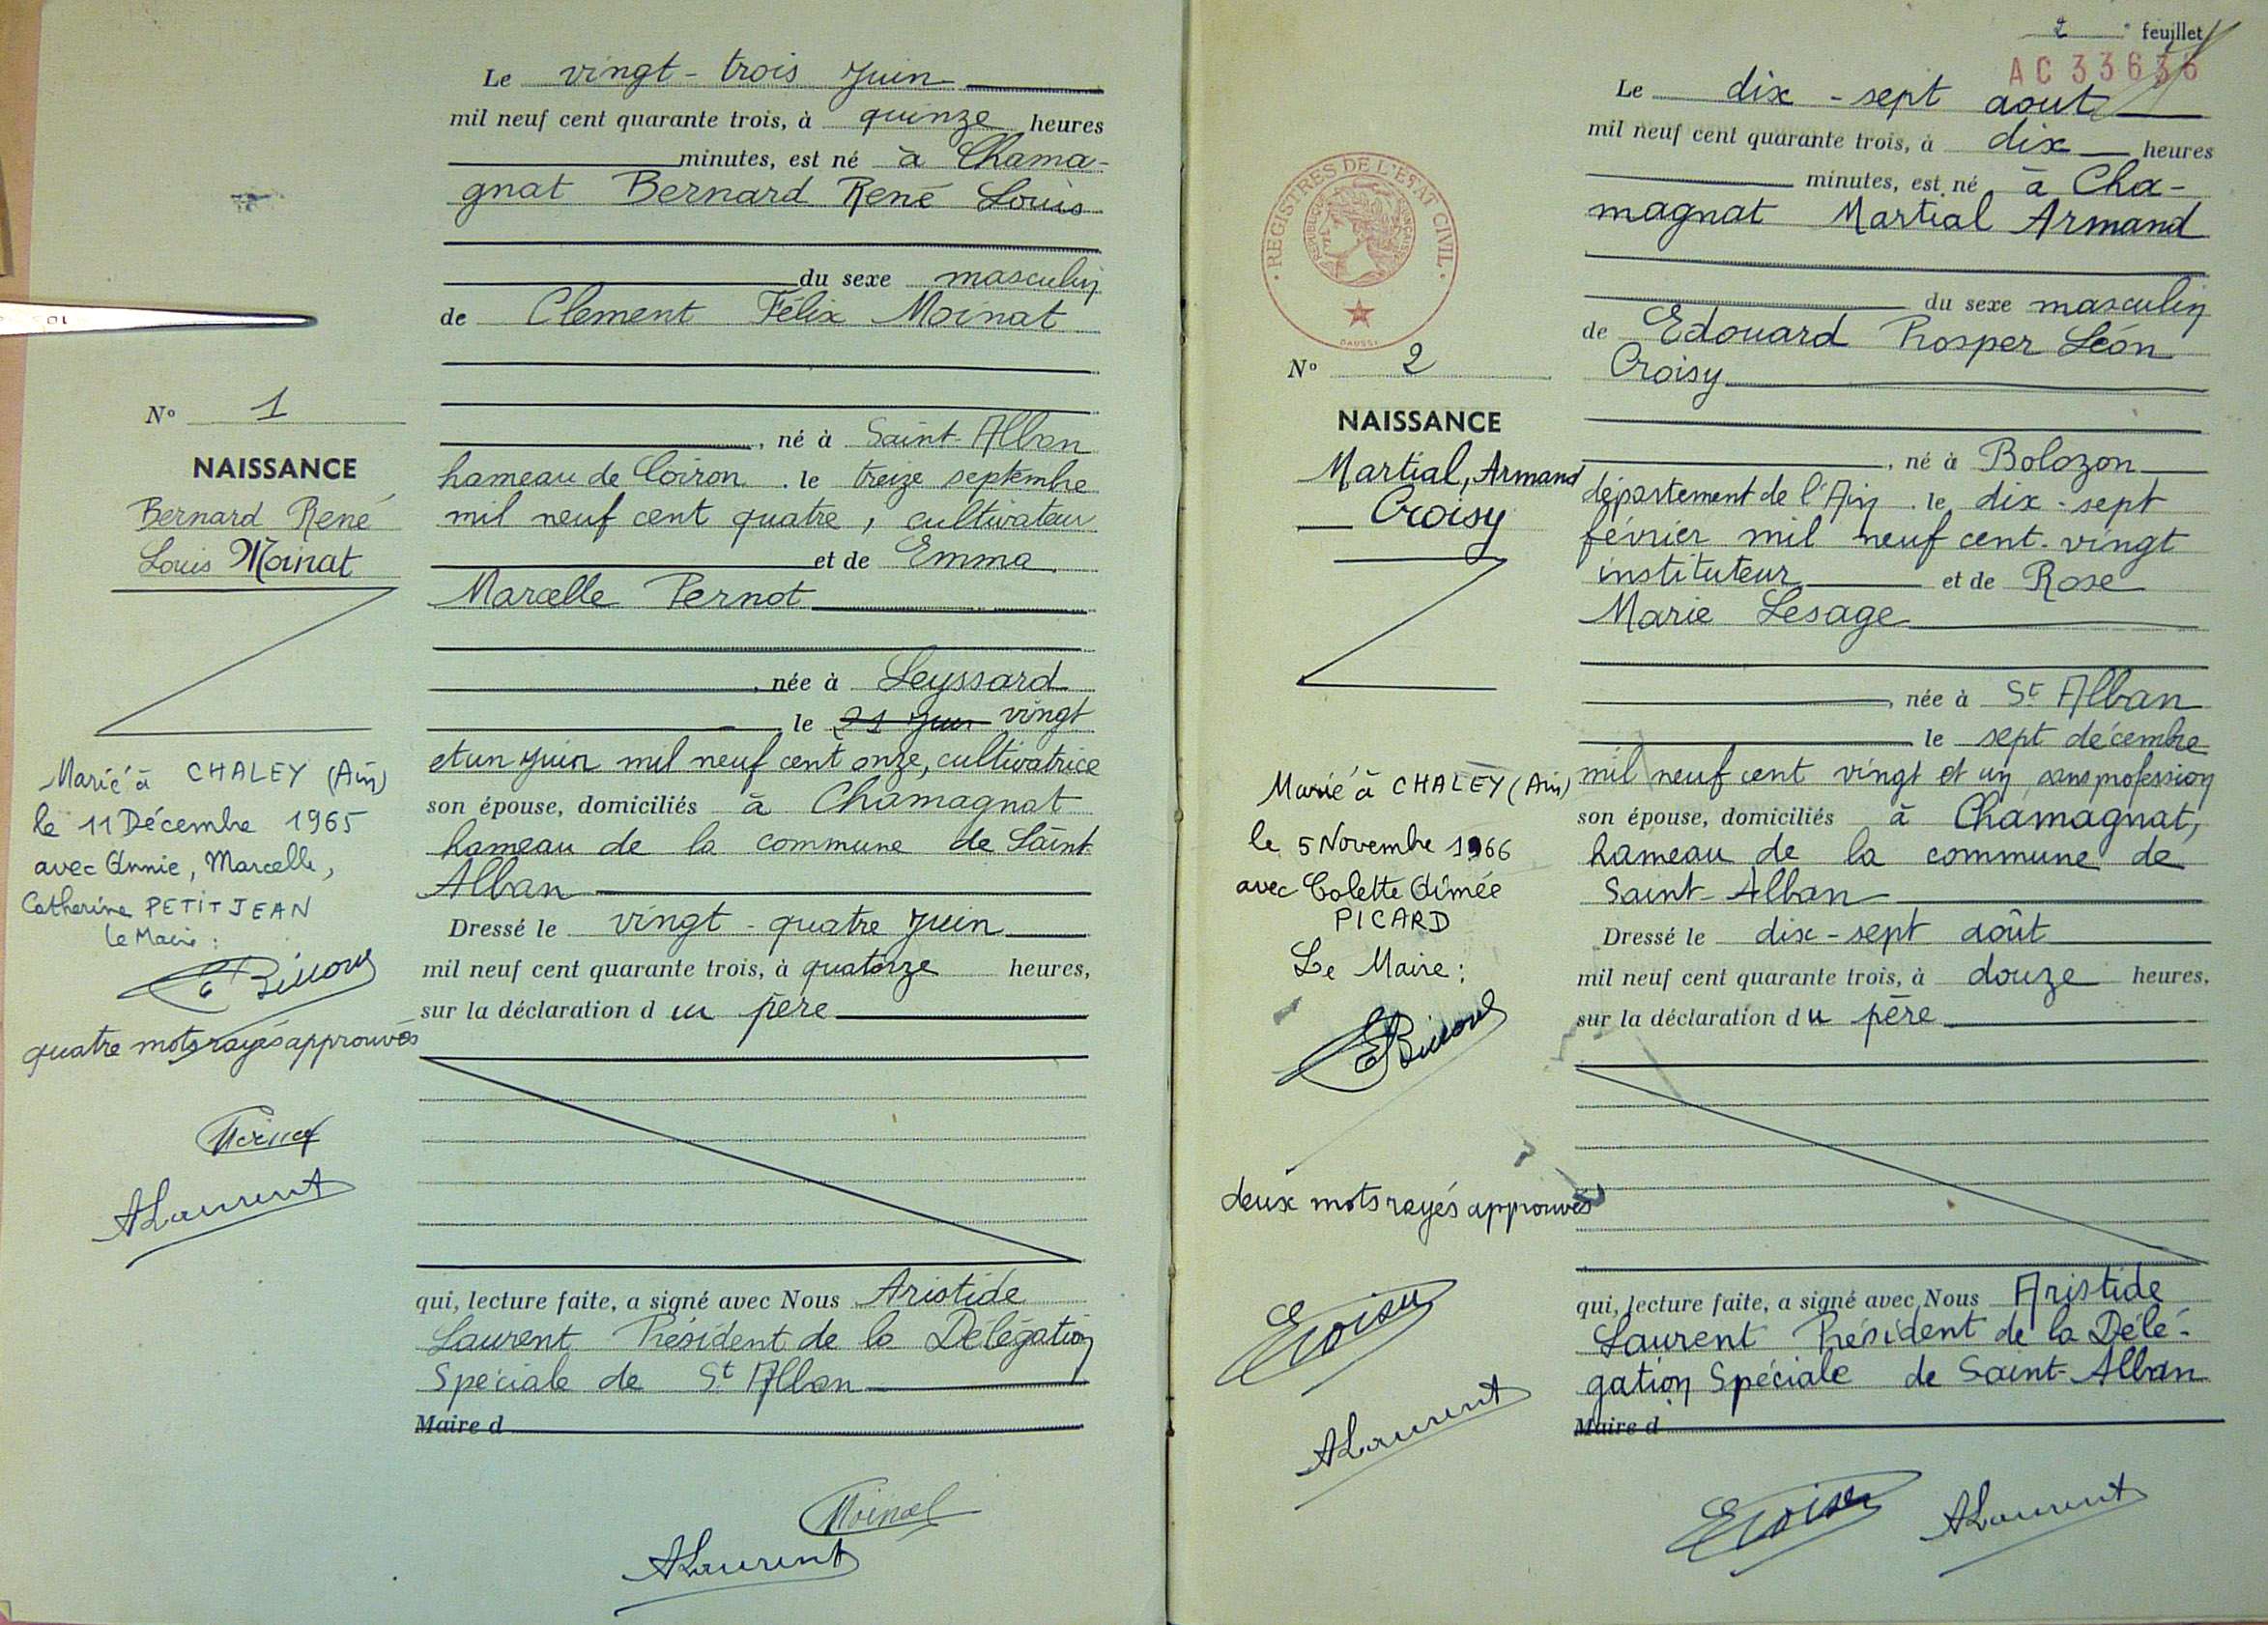 Le vingt-trois Juin
mil neuf cent quarante trois, à quinze heures
minutes, est né à Chama-
gnat Bernard René Louis
du sexe masculin
de Clement Félix Moinat
, né à Saint-Alban
hameau de Coiron . le treize septembre
mil neuf cent quatre, cultivateur
et de Emma
Marcelle Pernot
, née à Leyssard
le 21 Juin vingt
et un Juin mil neuf cent onze, cultivatrice
son épouse, domiciliés à Chamagnat
hameau de la commune de Saint
Alban
Dressé le vingt-quatre Juin
mil neuf cent quarante trois, à quatorze heures,
sur la déclaration du père
qui, lecture faite, a signé avec Nous Aristide
Laurent Président de la Délégation
Spéciale de St Alban
Maire d
Moinat
ALaurent
N° 1
NAISSANCE
Bernard René
Louis Moinat
Marié à CHALEY (Ain)
le 11 Décembre 1965
avec Annie, Marcelle,
Catherine PETITJEAN
Le Maire :
quatre mots rayés approuvés
Moinat
ALaurent
2e feuillet
AC 33636
Le dix-sept aout
mil neuf cent quarante trois, à dix heures
minutes, est né à Cha-
magnat Martial Armand
du sexe masculin
de Edouard Prosper Léon
Croisy
, né à Bolozon
département de l'Ain . le dix-sept
février mil neuf cent vingt
instituteur et de Rose
Marie Lesage
, née à St Alban
le sept décembre
mil neuf cent vingt et un, sans profession
son épouse, domiciliés à Chamagnat,
hameau de la commune de
Saint-Alban
Dressé le dix-sept août
mil neuf cent quarante trois, à douze heures,
sur la déclaration du père
qui, lecture faite, a signé avec Nous Aristide
Laurent Président de la Délé-
gation Spéciale de Saint-Alban
Maire d
Croisy
ALaurent
REGISTRES DE L'ETAT CIVIL
REPUBLIQUE FRANÇAISE
DAUSSI
N° 2
NAISSANCE
Martial, Armand
Croisy
Marié à CHALEY (Ain)
le 5 Novembre 1966
avec Colette Aimée
PICARD
Le Maire :
deux mots rayés approuvés
Croisy
ALaurent